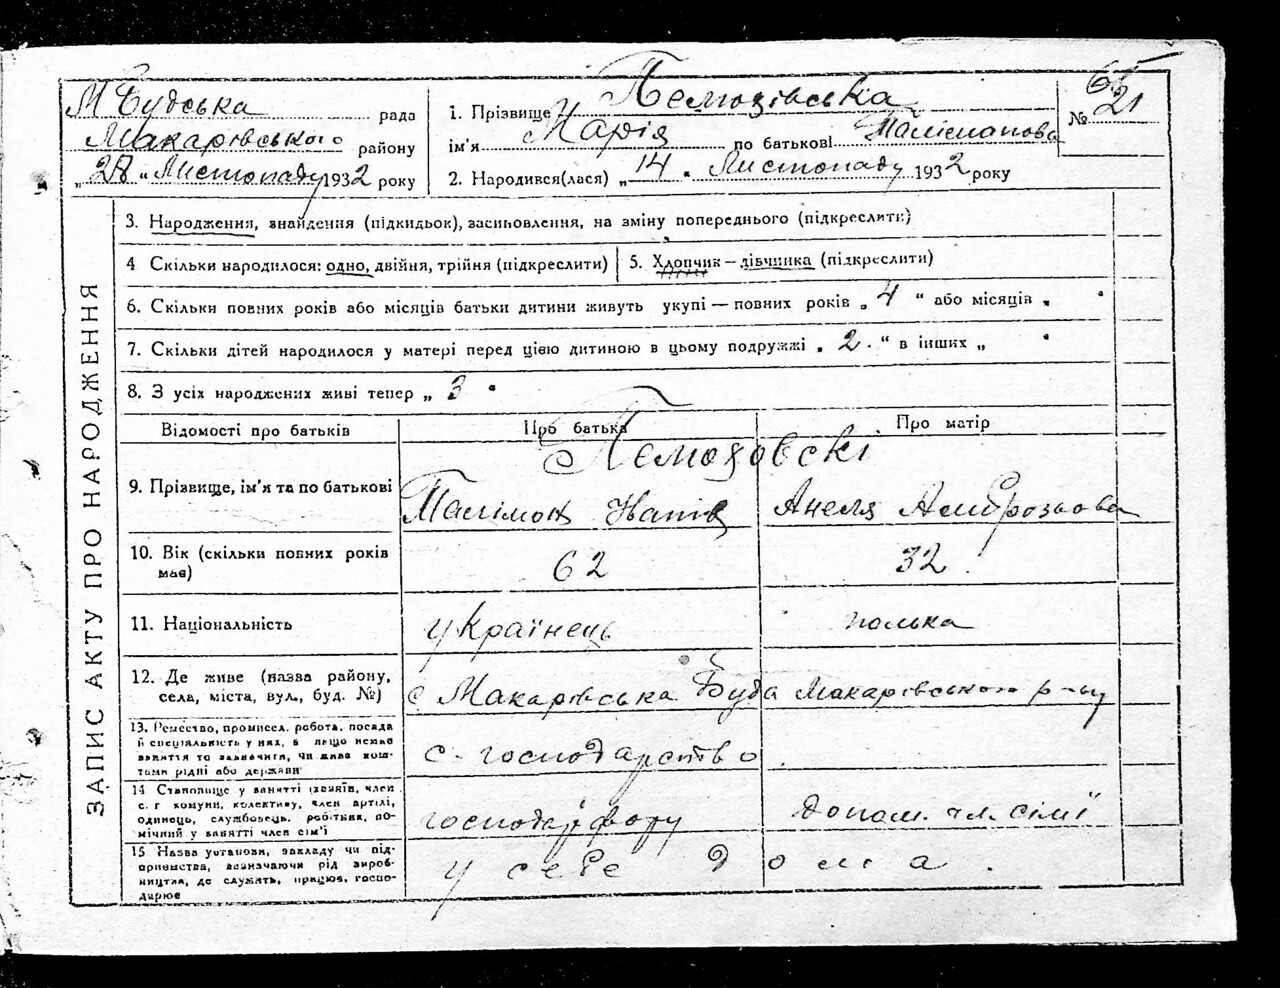 ЗАПИС АКТУ ПРО НАРОДЖЕННЯ
М Будська рада
Макарівського району
„28" Листопаду 1932 року
1. Прізвище
ім'я Марія по батькові
№ 21
2. Народився(лася) „14" Листопаду 1932 року
3. Народження, знайдення (підкидьок), засиновлення, на зміну попереднього (підкреслити)
4 Скільки народилося: одно, двійня, трійня (підкреслити)
5. Хлопчик — дівчинка (підкреслити)
6. Скільки повних років або місяців батьки дитини живуть укупі — повних років „ 4 " або місяців „ "
7. Скільки дітей народилося у матері перед цією дитиною в цьому подружжі „ 2 " в інших „ "
8. З усіх народжених живі тепер „ 3 "
Відомості про батьків
Про батька
Про матір
9. Прізвище, ім'я та по батькові
Анеля Амброзьова
10. Вік (скільки повних років має)
62
32
11. Національність
українець
полька
12. Де живе (назва району, села, міста, вул., буд. №)
с Макарівська Буда Макарівського р-ну
13. Ремество, промисел, робота, посада й спеціяльність у них, а якщо немає заняття то зазначити, чи жива коштами рідні або держави
с-господарство
14 Становище у занятті (хазяїн, член с. г комуни, колективу, член артілі, одинець, службовець, робітник, помічний у занятті член сім'ї
господар двору
допом. чл. сім'ї
15 Назва установи, закладу чи підприємства, зазначаючи рід виробництва, де служить, працює, господарює
у себе дома.